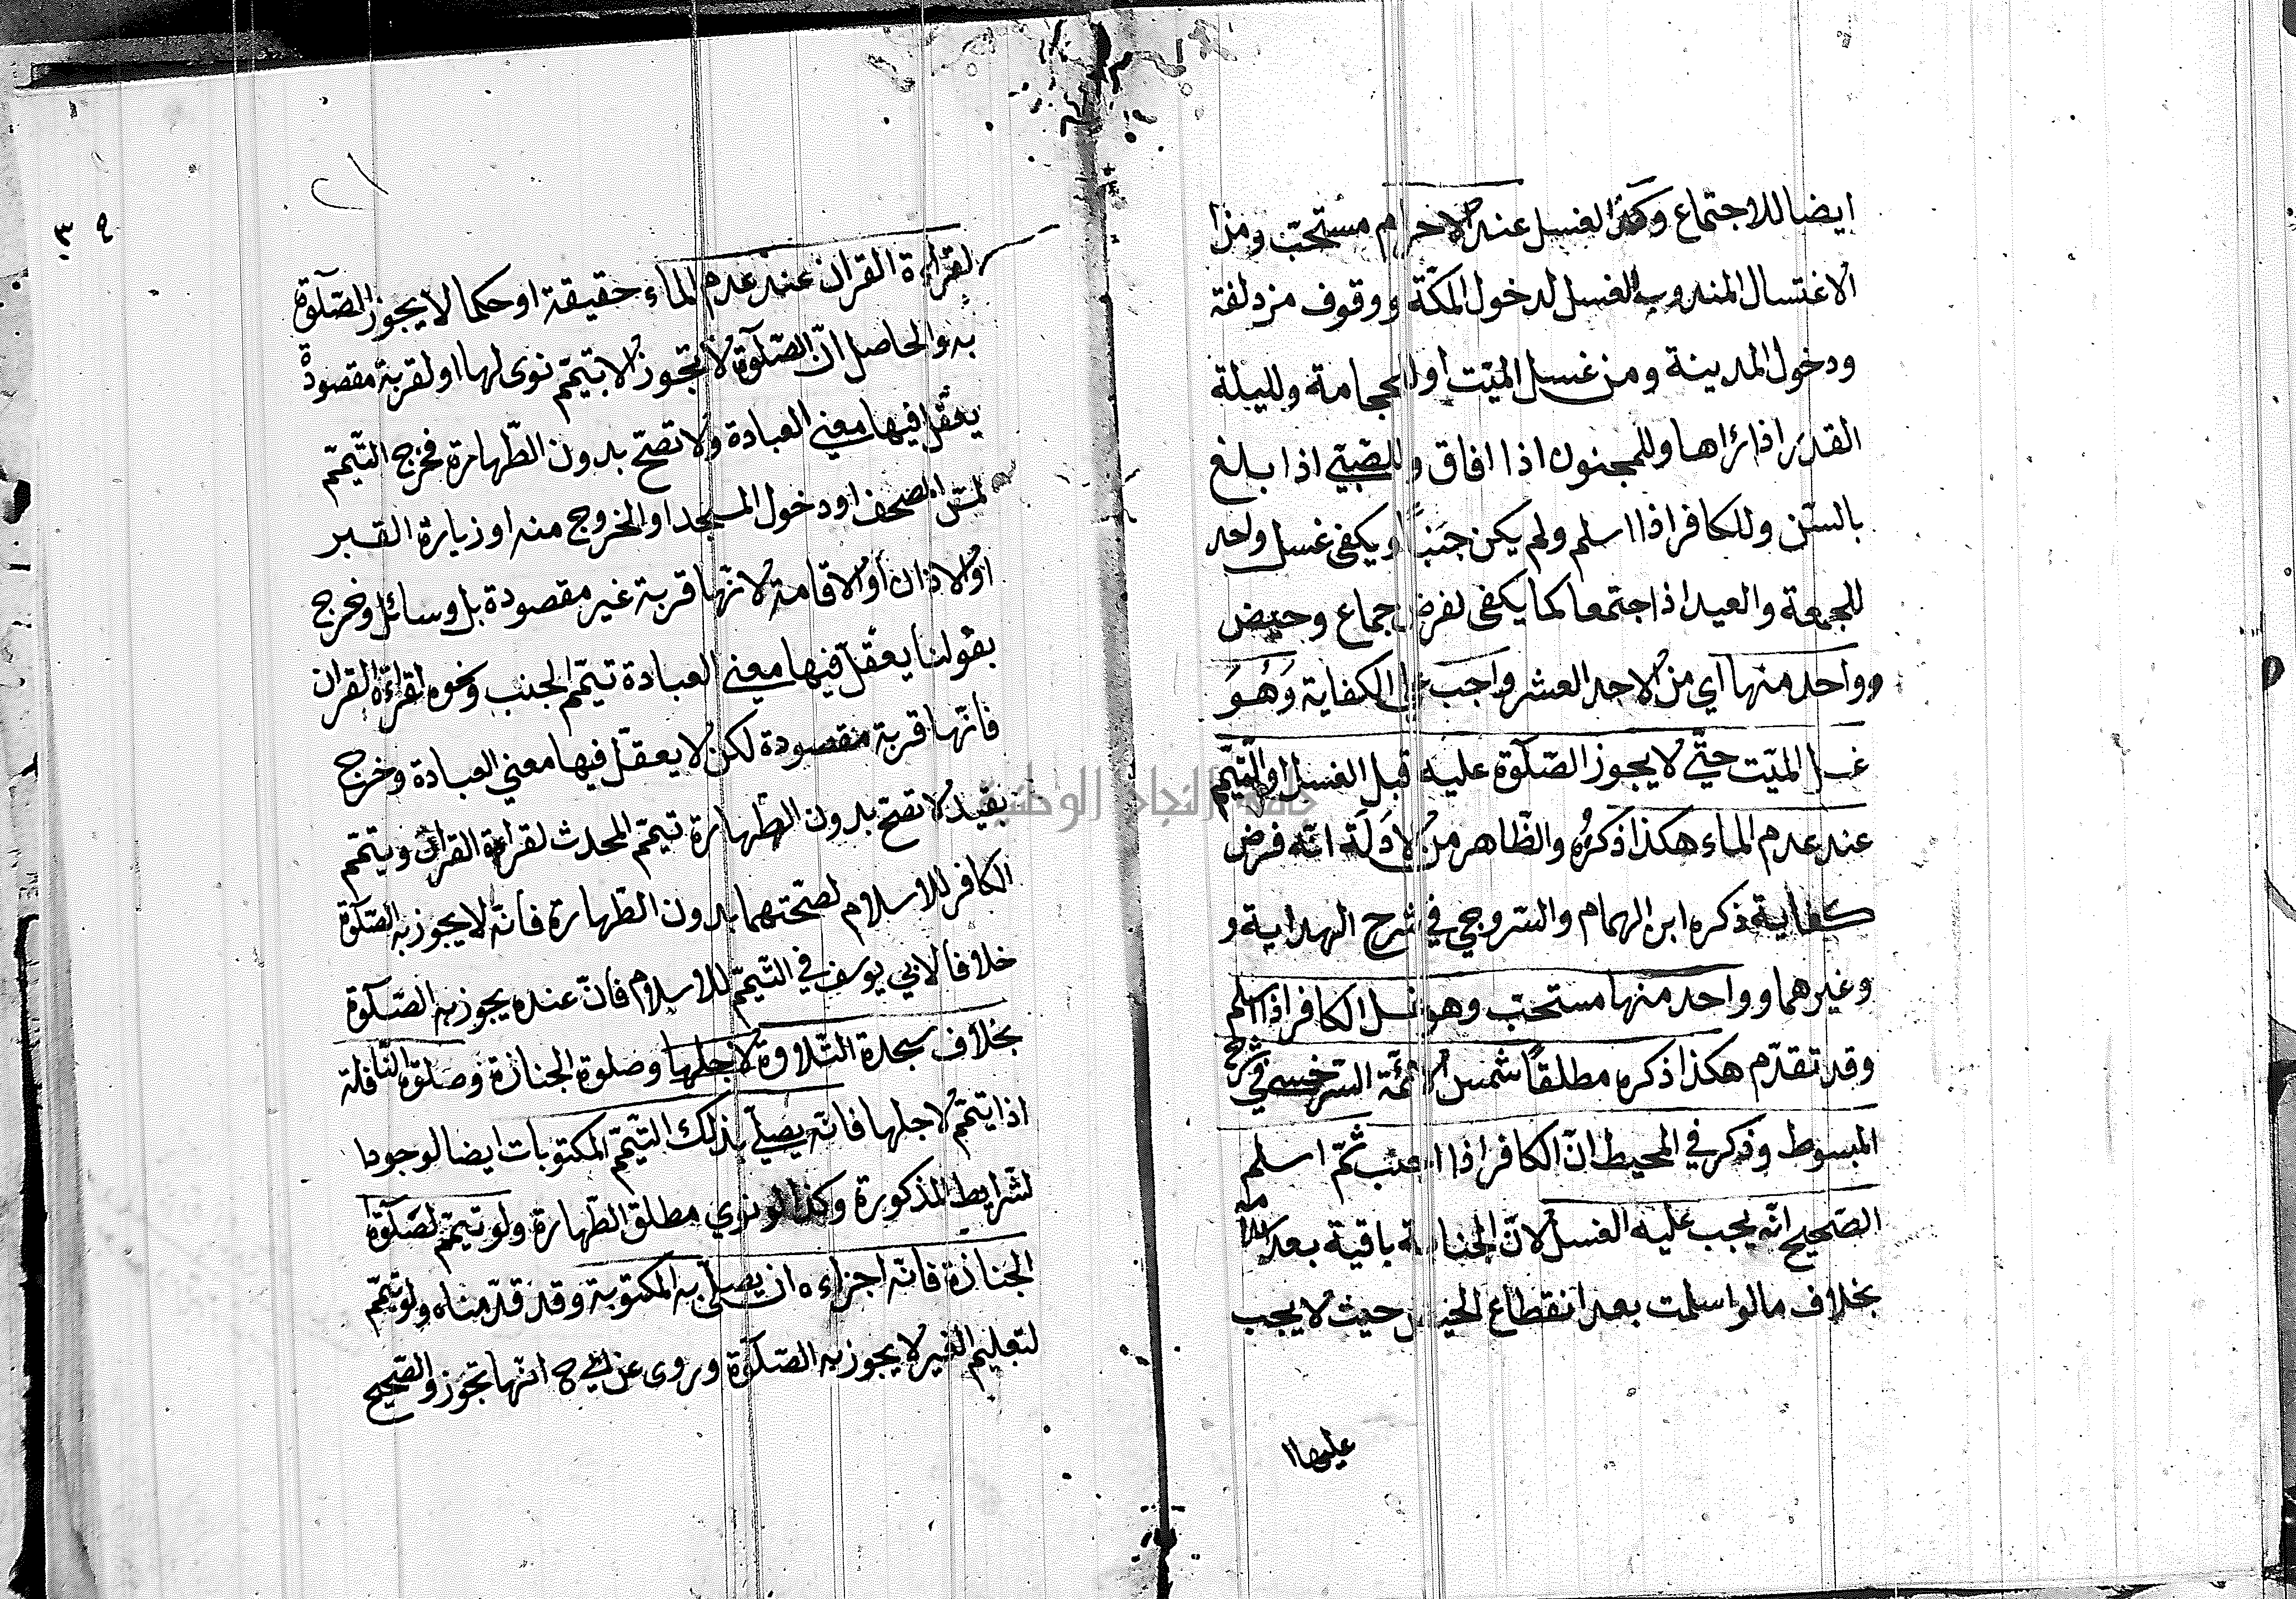 ايضا للاجتماع وكذا الغسل عند الاحرام مستحبّ ومن
الاغتسال المندوب الغسل لدخول المكّة ووقوف مزدلفة
ودخول المدينة ومن غسل الميّت او للحجامة ولليلة
القدر اذا راها وللمجنون اذا افاق وللصّبيّ اذا بلغ
بالسّن وللكافر اذا اسلم ولم يكن جنبًا ويكفى غسل واحد
للجمعة والعيد اذا اجتمعا كما يكفى لفرض جماع وحيض
وواحد منها اي من الاحد العشر واجب على الكفاية وَهُوَ
غسل الميّت حتّي لا يجوز الصّلوٰة عليه قبل الغسل او التّيمّم
عند عدم الماء هكذا ذكرُه والظّاهر من الادلّة انّه فرض
كفاية ذكره ابن الهمام والسّروجي في شرح الهداية و
وغيرهما وواحد منها مستحبّ وهو غسل الكافر اذا اسلم
وقد تقدّم هكذا ذكره مطلقًا شمس الائمّة السّرخسي في شرح
المبسوط وذكر في المحيط انّ الكافر اذا اجنب ثمّ اسلم
الصّحيح انّه يجب عليه الغسل لانّ الجنابة باقية بعد اسلامه
بخلاف ما لو اسلمت بعد انقطاع الحيض حيث لا يجب
عليها
٣٩
لقراءة القران عند عدم الماء حقيقة او حكما لا يجوز الصّلوٰة
به والحاصل انّ الصّلوٰة لا تجوز الا بتيمّم نوى لها او لقربة مقصودة
يعقل فيها معني العبادة ولا تصحّ بدون الطّهارة فخرج التّيمّم
لمسّ المصحف او دخول المسجد او الخروج منه او زيارة القبر
او الاذان او الاقامة لانّها قربة غير مقصودة بل وسائل وخرج
بقولنا يعقل فيها معني العبادة تيمّم الجنب ونحوه لقراءة القران
فانّها قربة مقصودة لكن لا يعقل فيها معني العبادة وخرج
بقيد لا تصحّ بدون الطّهارة تيمّم المحدث لقراءة القران وتيمّم
الكافر للاسلام لصحّتهما بدون الطّهارة فانّه لا يجوز به الصّلوٰة
خلافا لابي يوسف في التّيمّم للاسلام فانّ عنده يجوز به الصّلوٰة
بخلاف سجدة التّلاوة لاجلها وصلوة الجنازة وصلوٰة النّافلة
اذا تيمّم لاجلها فانّه يصلّي بذلك التّيمّم المكتوبات ايضا لوجود ا
لشّرايط المذكورة وكذا لو نوي مطلق الطّهارة ولو تيمّم لصلوٰة
الجنازة فانّه اجزاءه ان يصلّي به المكتوبة وقد قدّمناه ولو تيمّم
لتعليم الغير لا يجوز به الصّلوٰة وروى عن ابي ح انّها تجوز والصّحيح
جامعة النجاح الوطنية